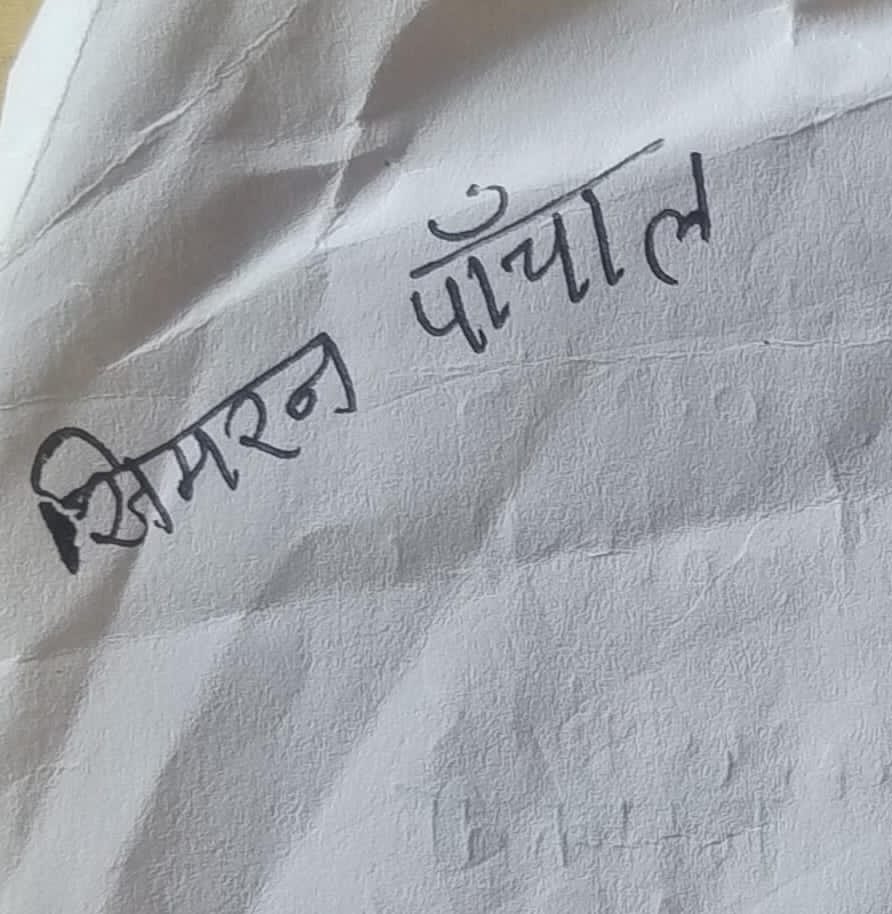 सिमरन पाँचाल